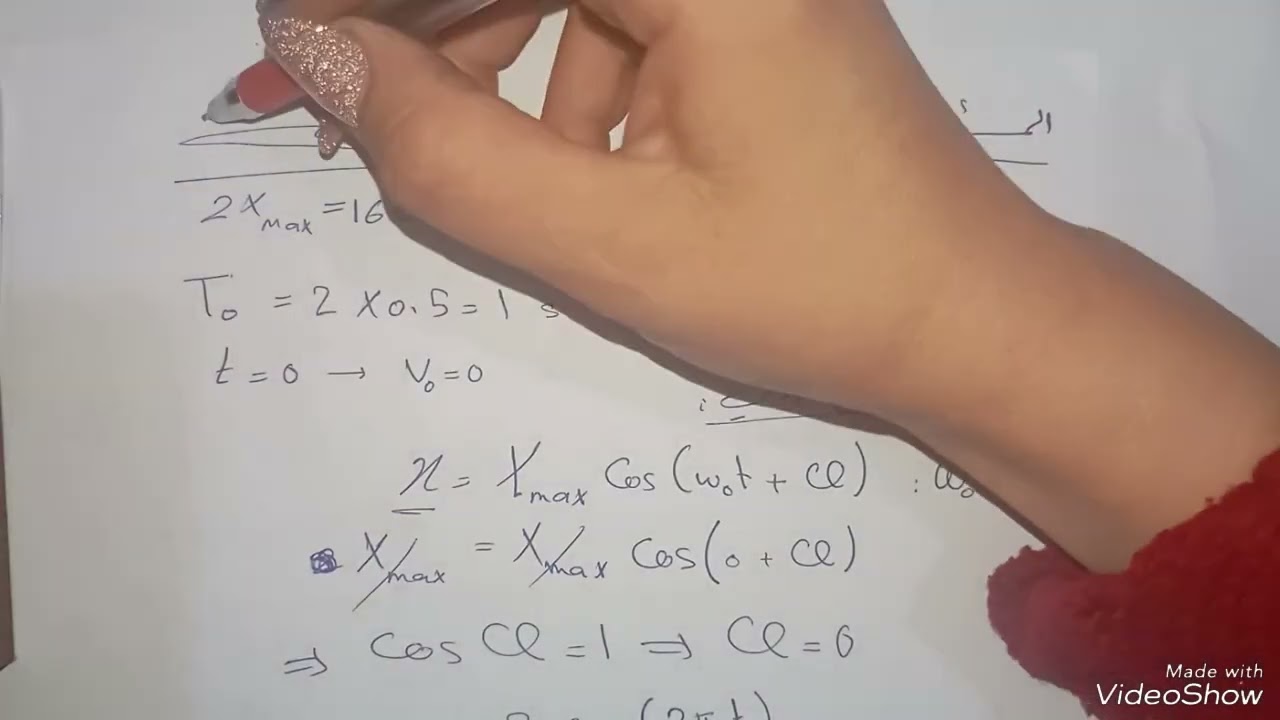 2X max = 16
T₀ = 2 × 0.5 = 1 s
t = 0 → V₀ = 0
x = X max Cos(ω₀t + φ) :
X max = X max Cos(0 + φ)
⇒ Cos φ = 1 ⇒ φ = 0
Made with
VideoShow